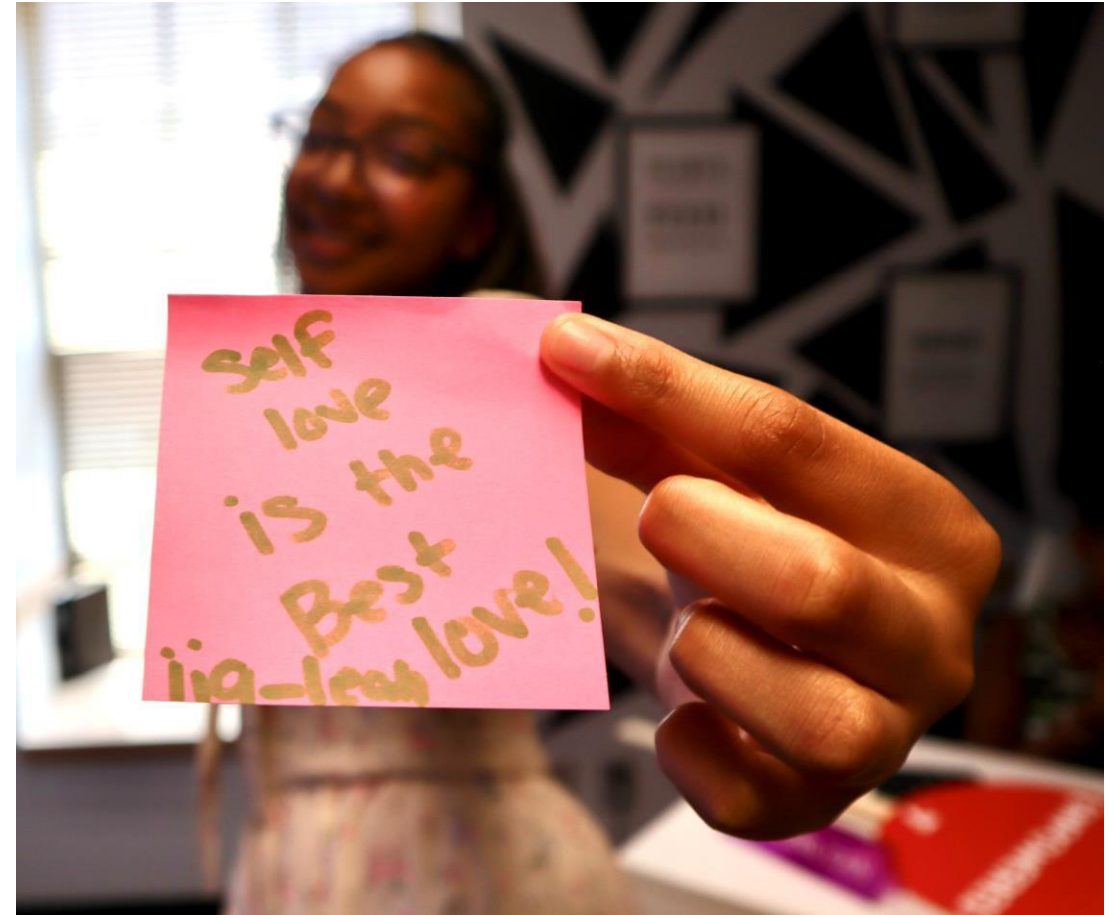 Self
love
is the
Best
love!